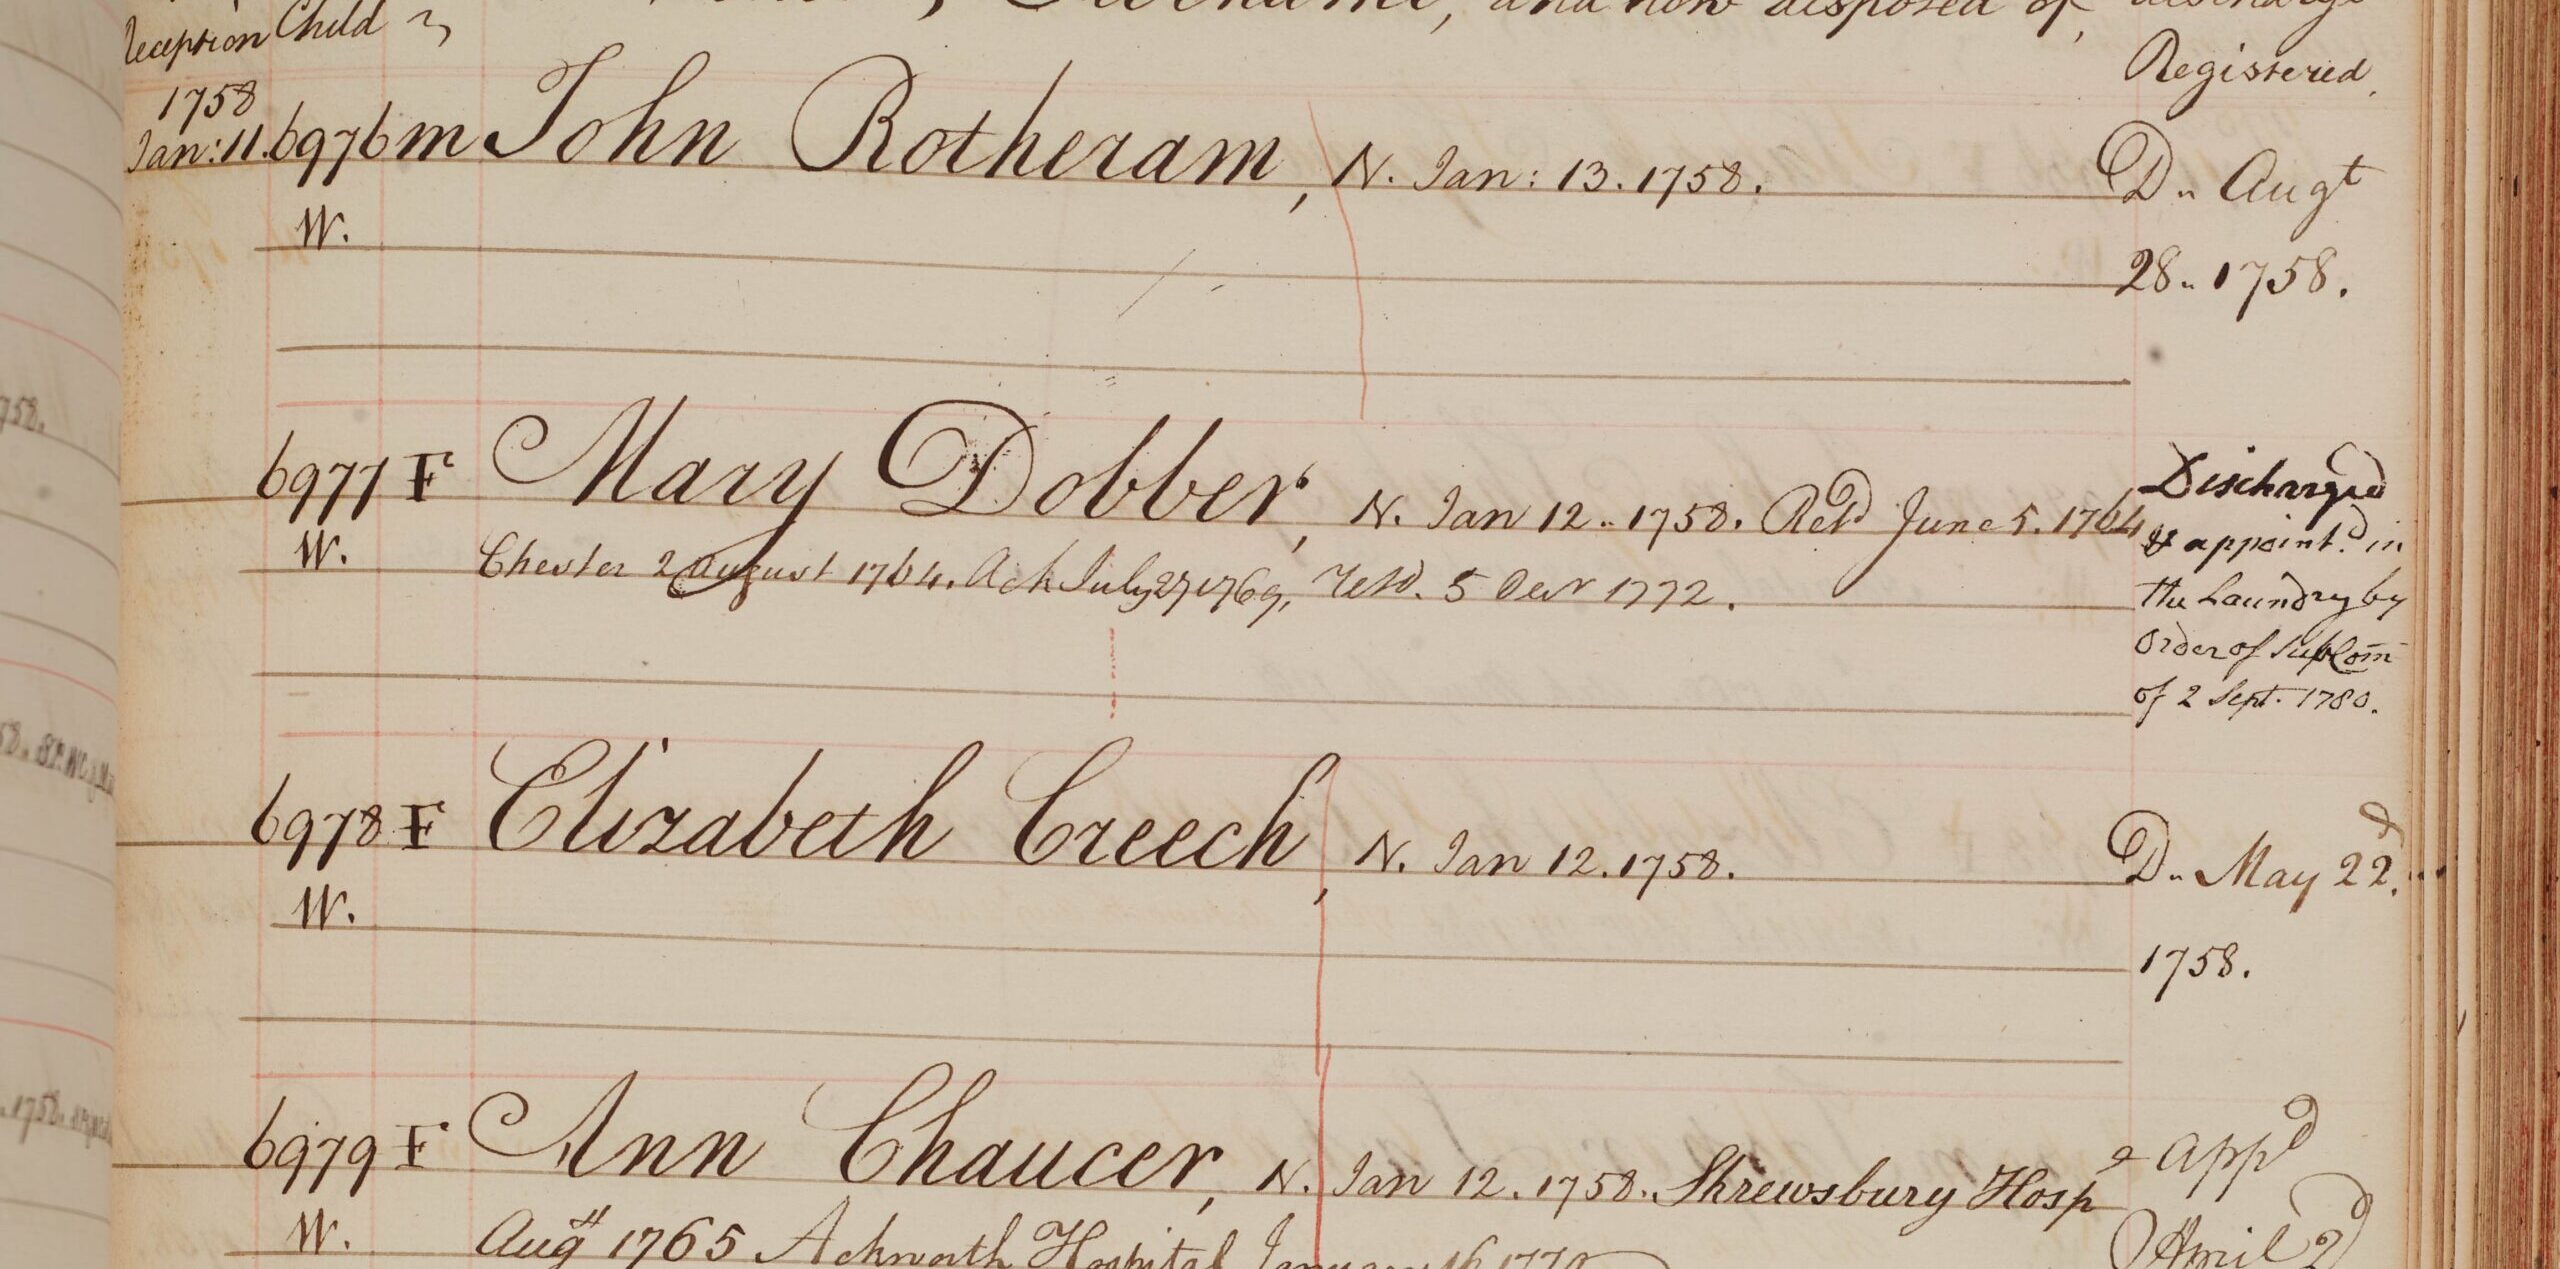 and how disposed of,
Reception Child
Registered
1758
Jan: 11. 6976 m John Rotheram, N. Jan: 13. 1758. D.. Augt
W. 28.. 1758.
6977 F Mary Dobber, N. Jan 12.. 1758. Retd June 5. 1764 Discharged
& appoint.d in
W. Chester 2 August 1764. Ack July 27 1769, Retd. 5 Decr 1772. the Laundry by
Order of Sub Com
of 2 Sept. 1780.
6978 F Elizabeth Creech, N. Jan 12. 1758. D.. May 22d.
W. 1758.
6979 F Ann Chaucer, N. Jan 12. 1758. Shrewsbury Hosp Appd
W. Augt 1765 Ackworth Hospital January 16 1770 April 2d